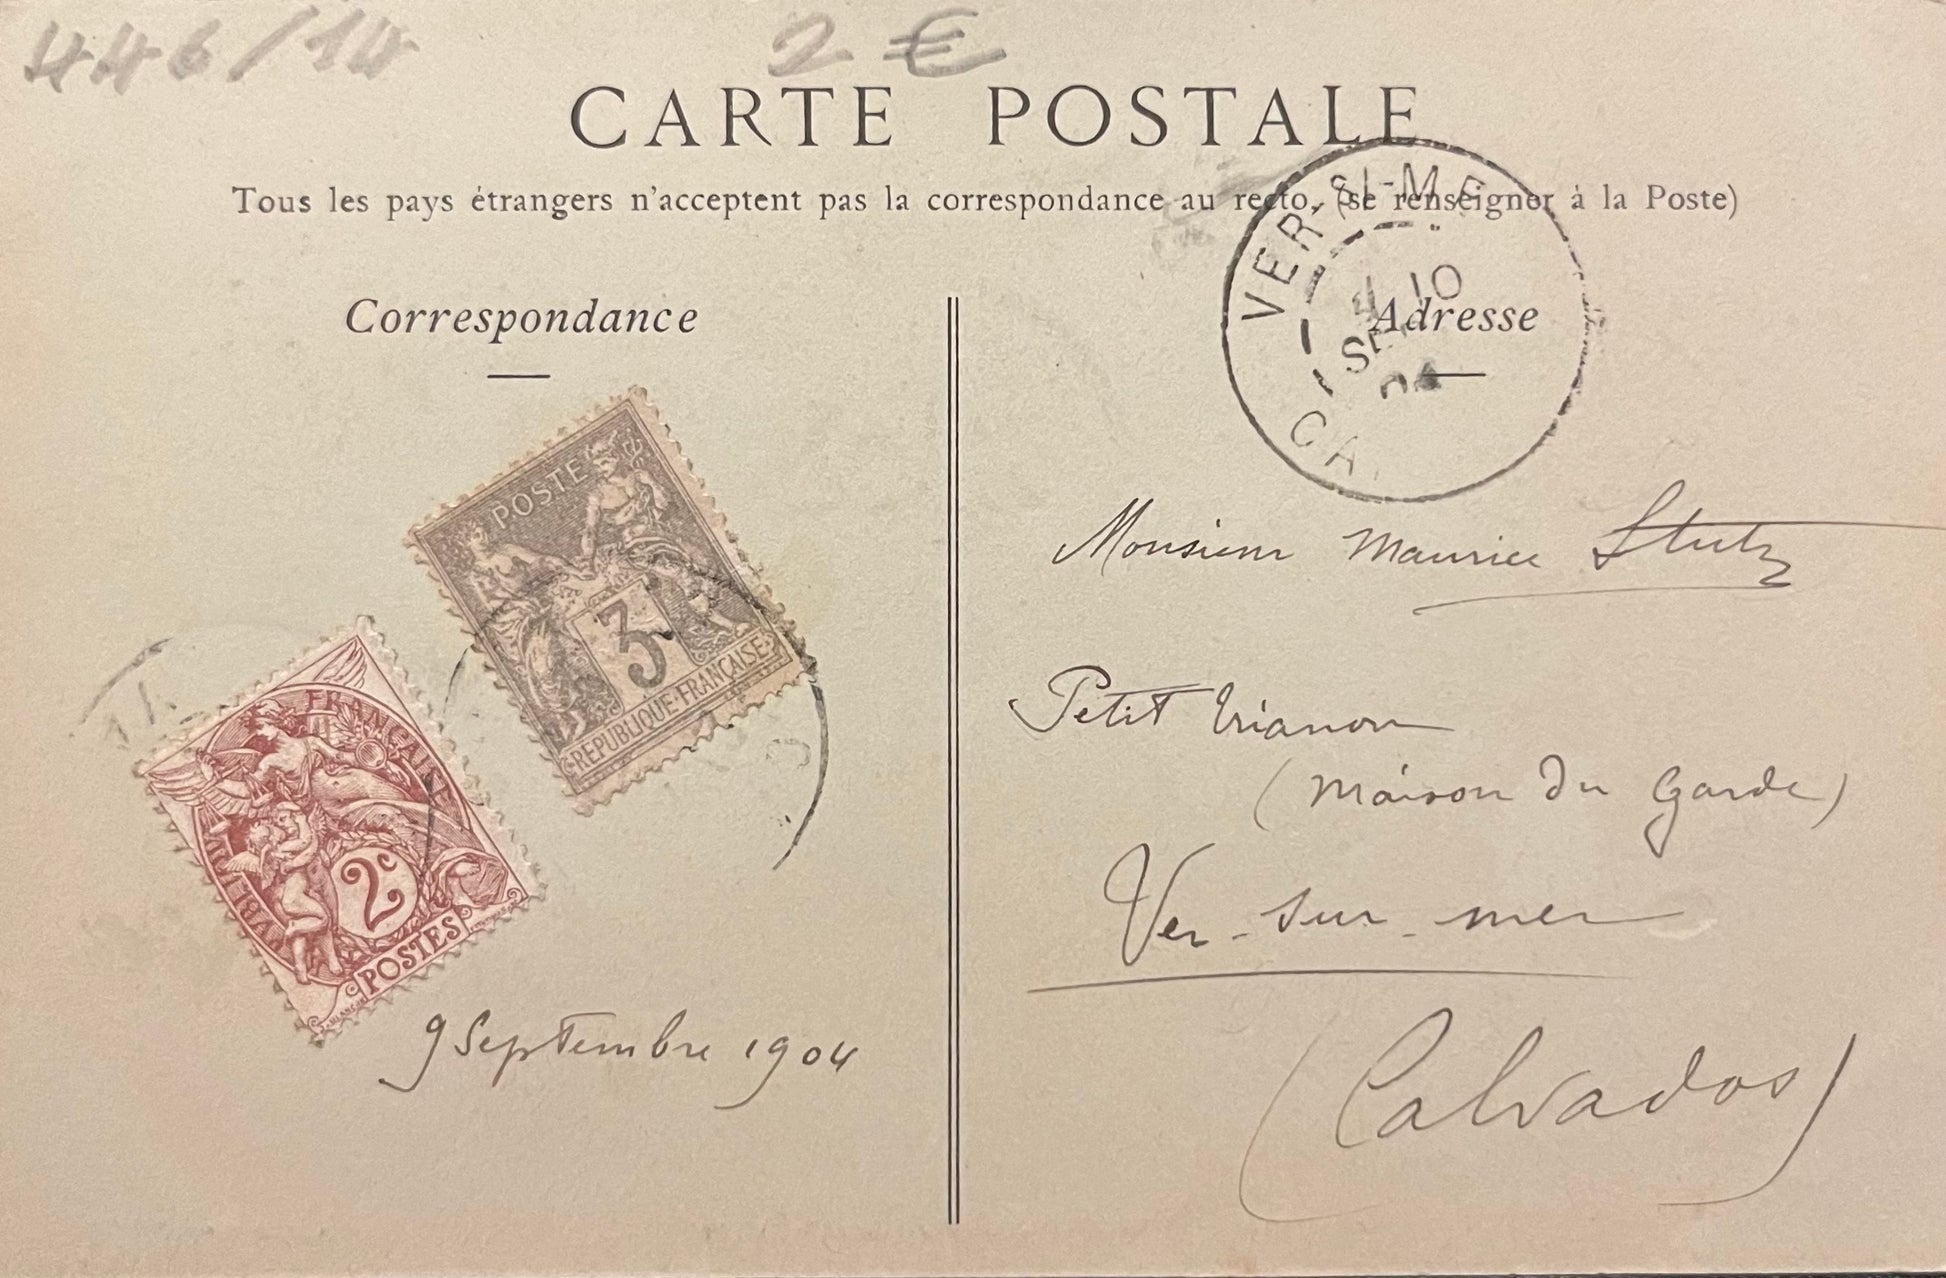 446/14
2 €
CARTE POSTALE
Tous les pays étrangers n'acceptent pas la correspondance au recto, (se renseigner à la Poste)
Correspondance
Adresse
VER-S/-ME
10
CA
POSTE
3
REPUBLIQUE FRANÇAISE
FRANÇAISE
2c
POSTES
9 Septembre 1904
Monsieur Maurice Stutz
Petit Trianon
(Maison du Garde)
Ver-sur-mer
(Calvados)